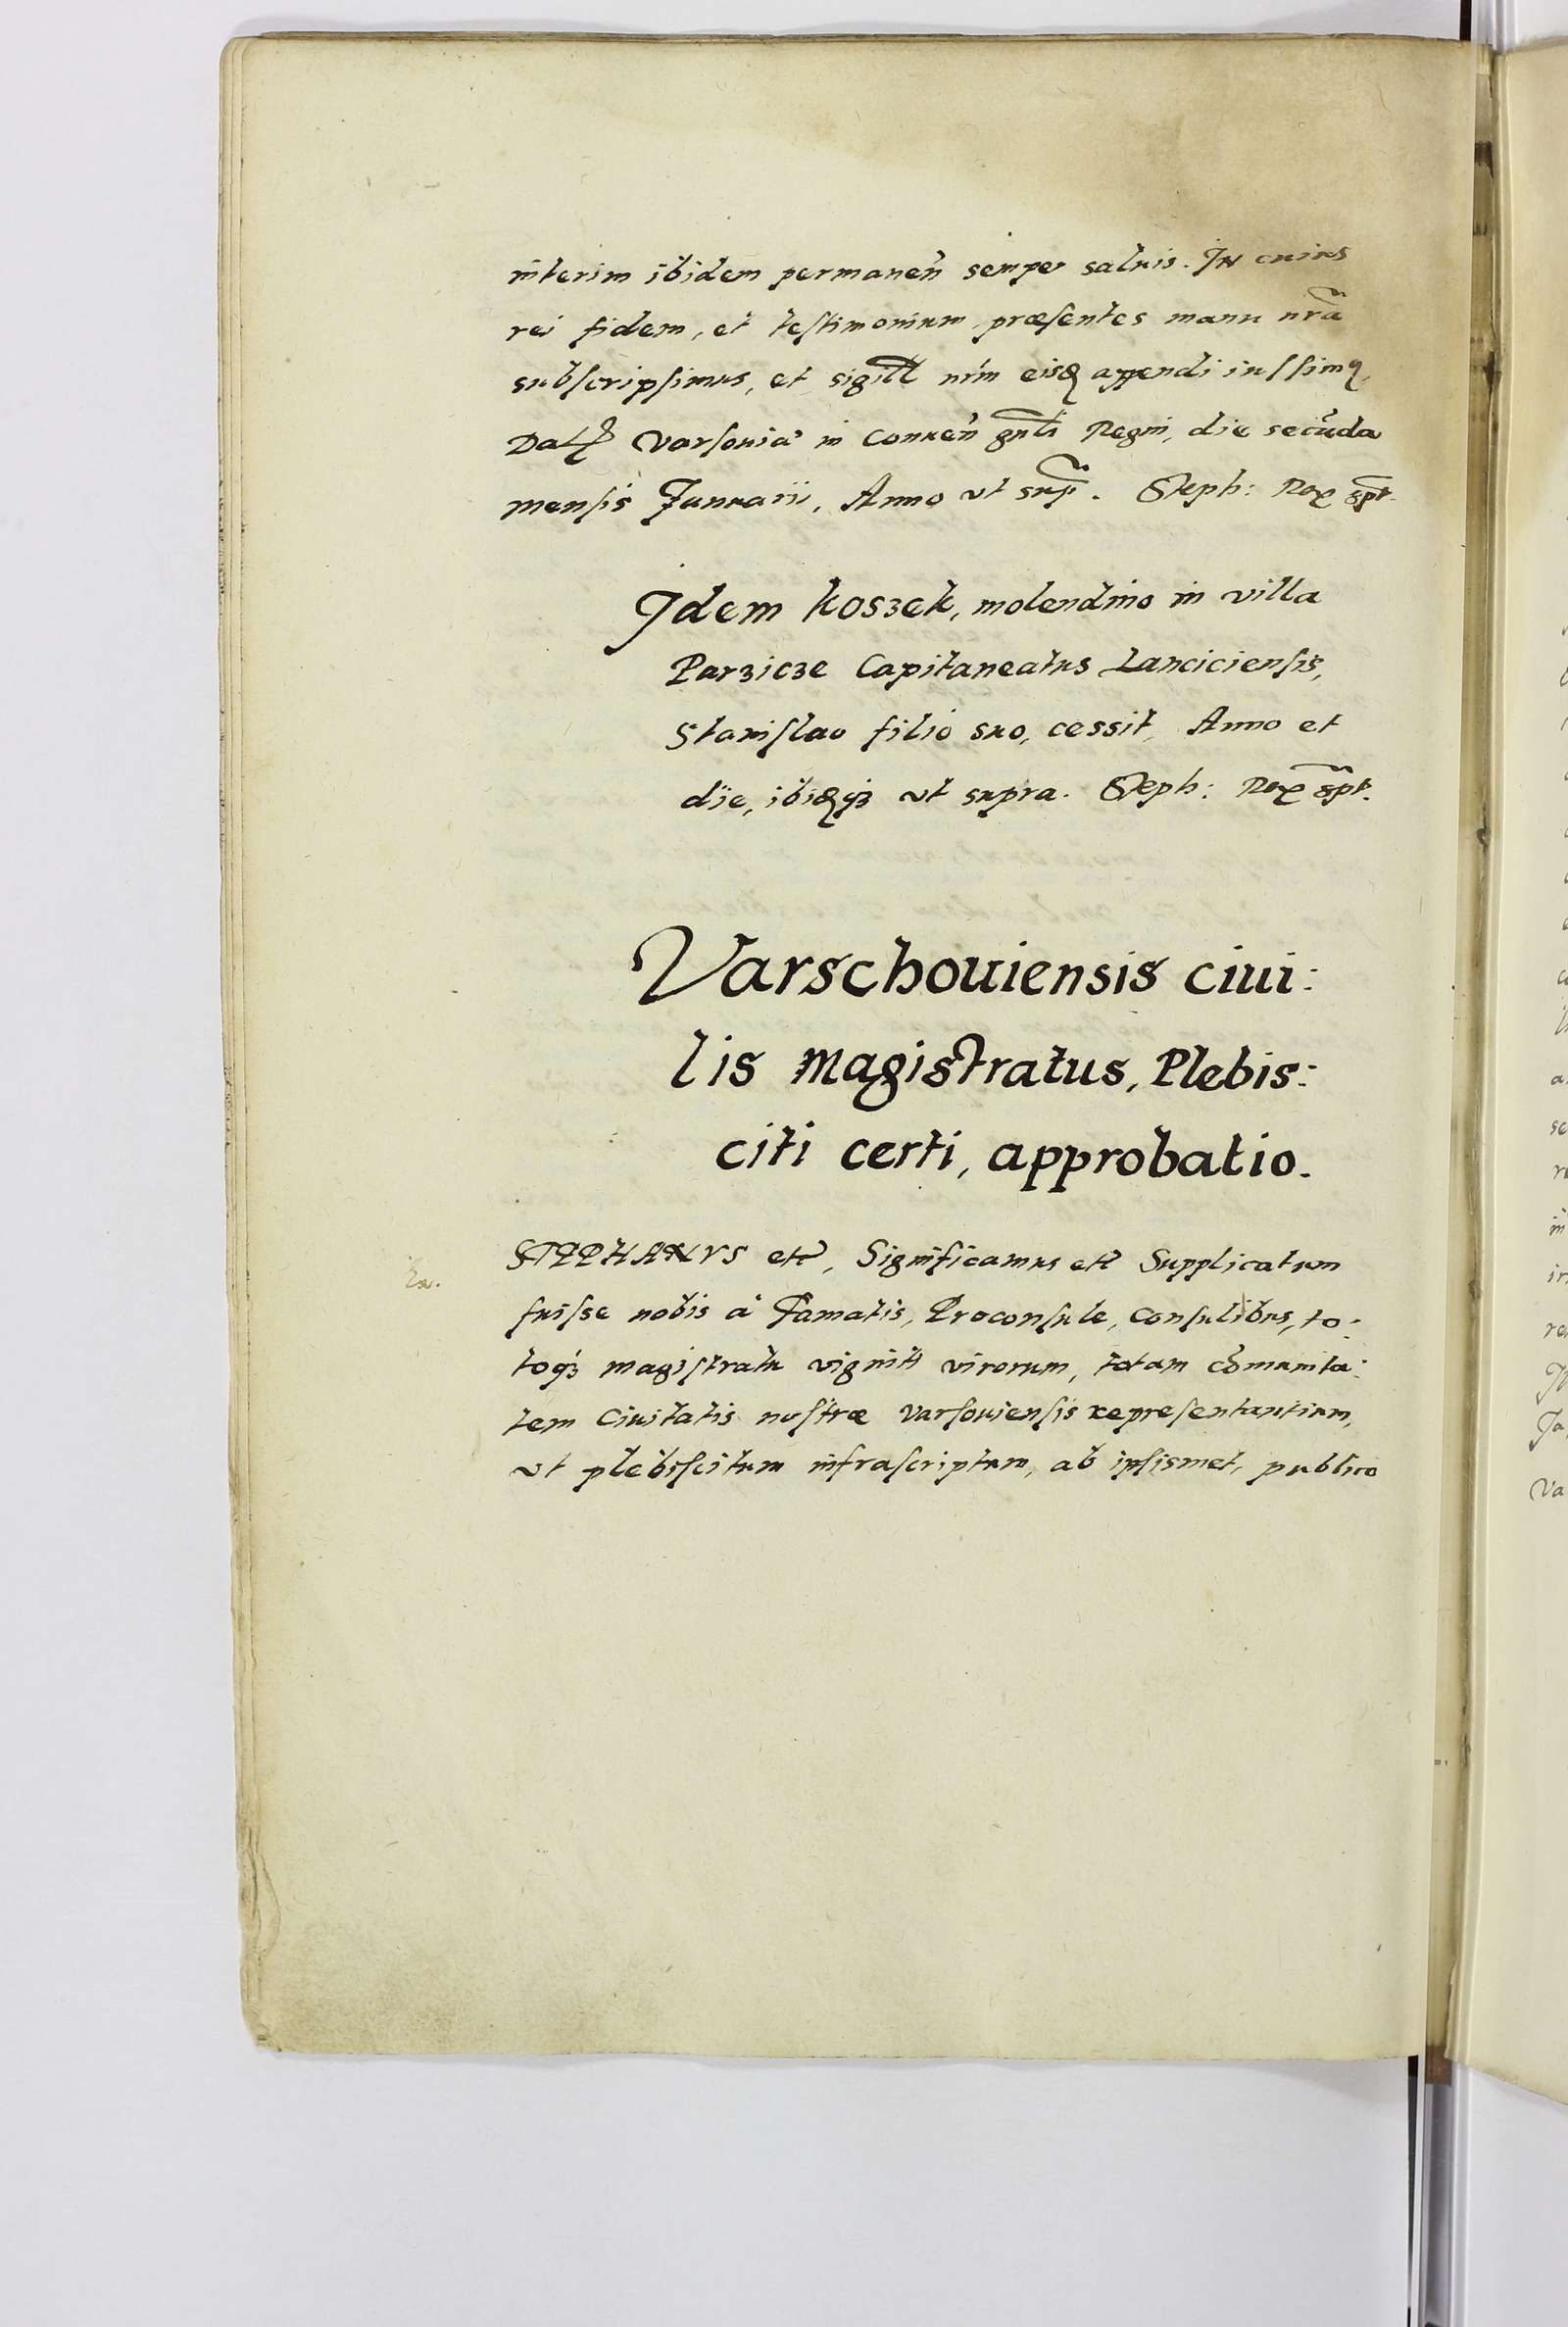 interim ibidem permaneñ semper saluis. IN cuius
rei fidem, et testimonium præsentes manu nrã
subscripsimus, et sigill nrm eisdẽ appendi iussimꝰ.
Dat Varsouiæ in Conueñ gnli Regni, die secũda
mensis Januarii, Anno vt sup̃. Steph: Rex sspt.
Idem koszek, molendino in villa
Parzicze Capitaneatus Lanciciensis,
Stanislao filio suo, cessit, Anno et
die, ibidqꝫ vt supra. Steph: Rex sspt.
Varschouiensis ciui:
lis magistratus, Plebis:
citi certi, approbatio.
Ex.
STEPHANVS etc, Significamus etc Supplicatum
fuisse nobis à Famatis, Proconsule, Consulibus, to:
toqꝫ magistratu viginti virorum, totam cõmunita:
tem Ciuitatis nostræ Varsouiensis representantium,
vt plebiscitum infrascriptum, ab ipsismet, publico